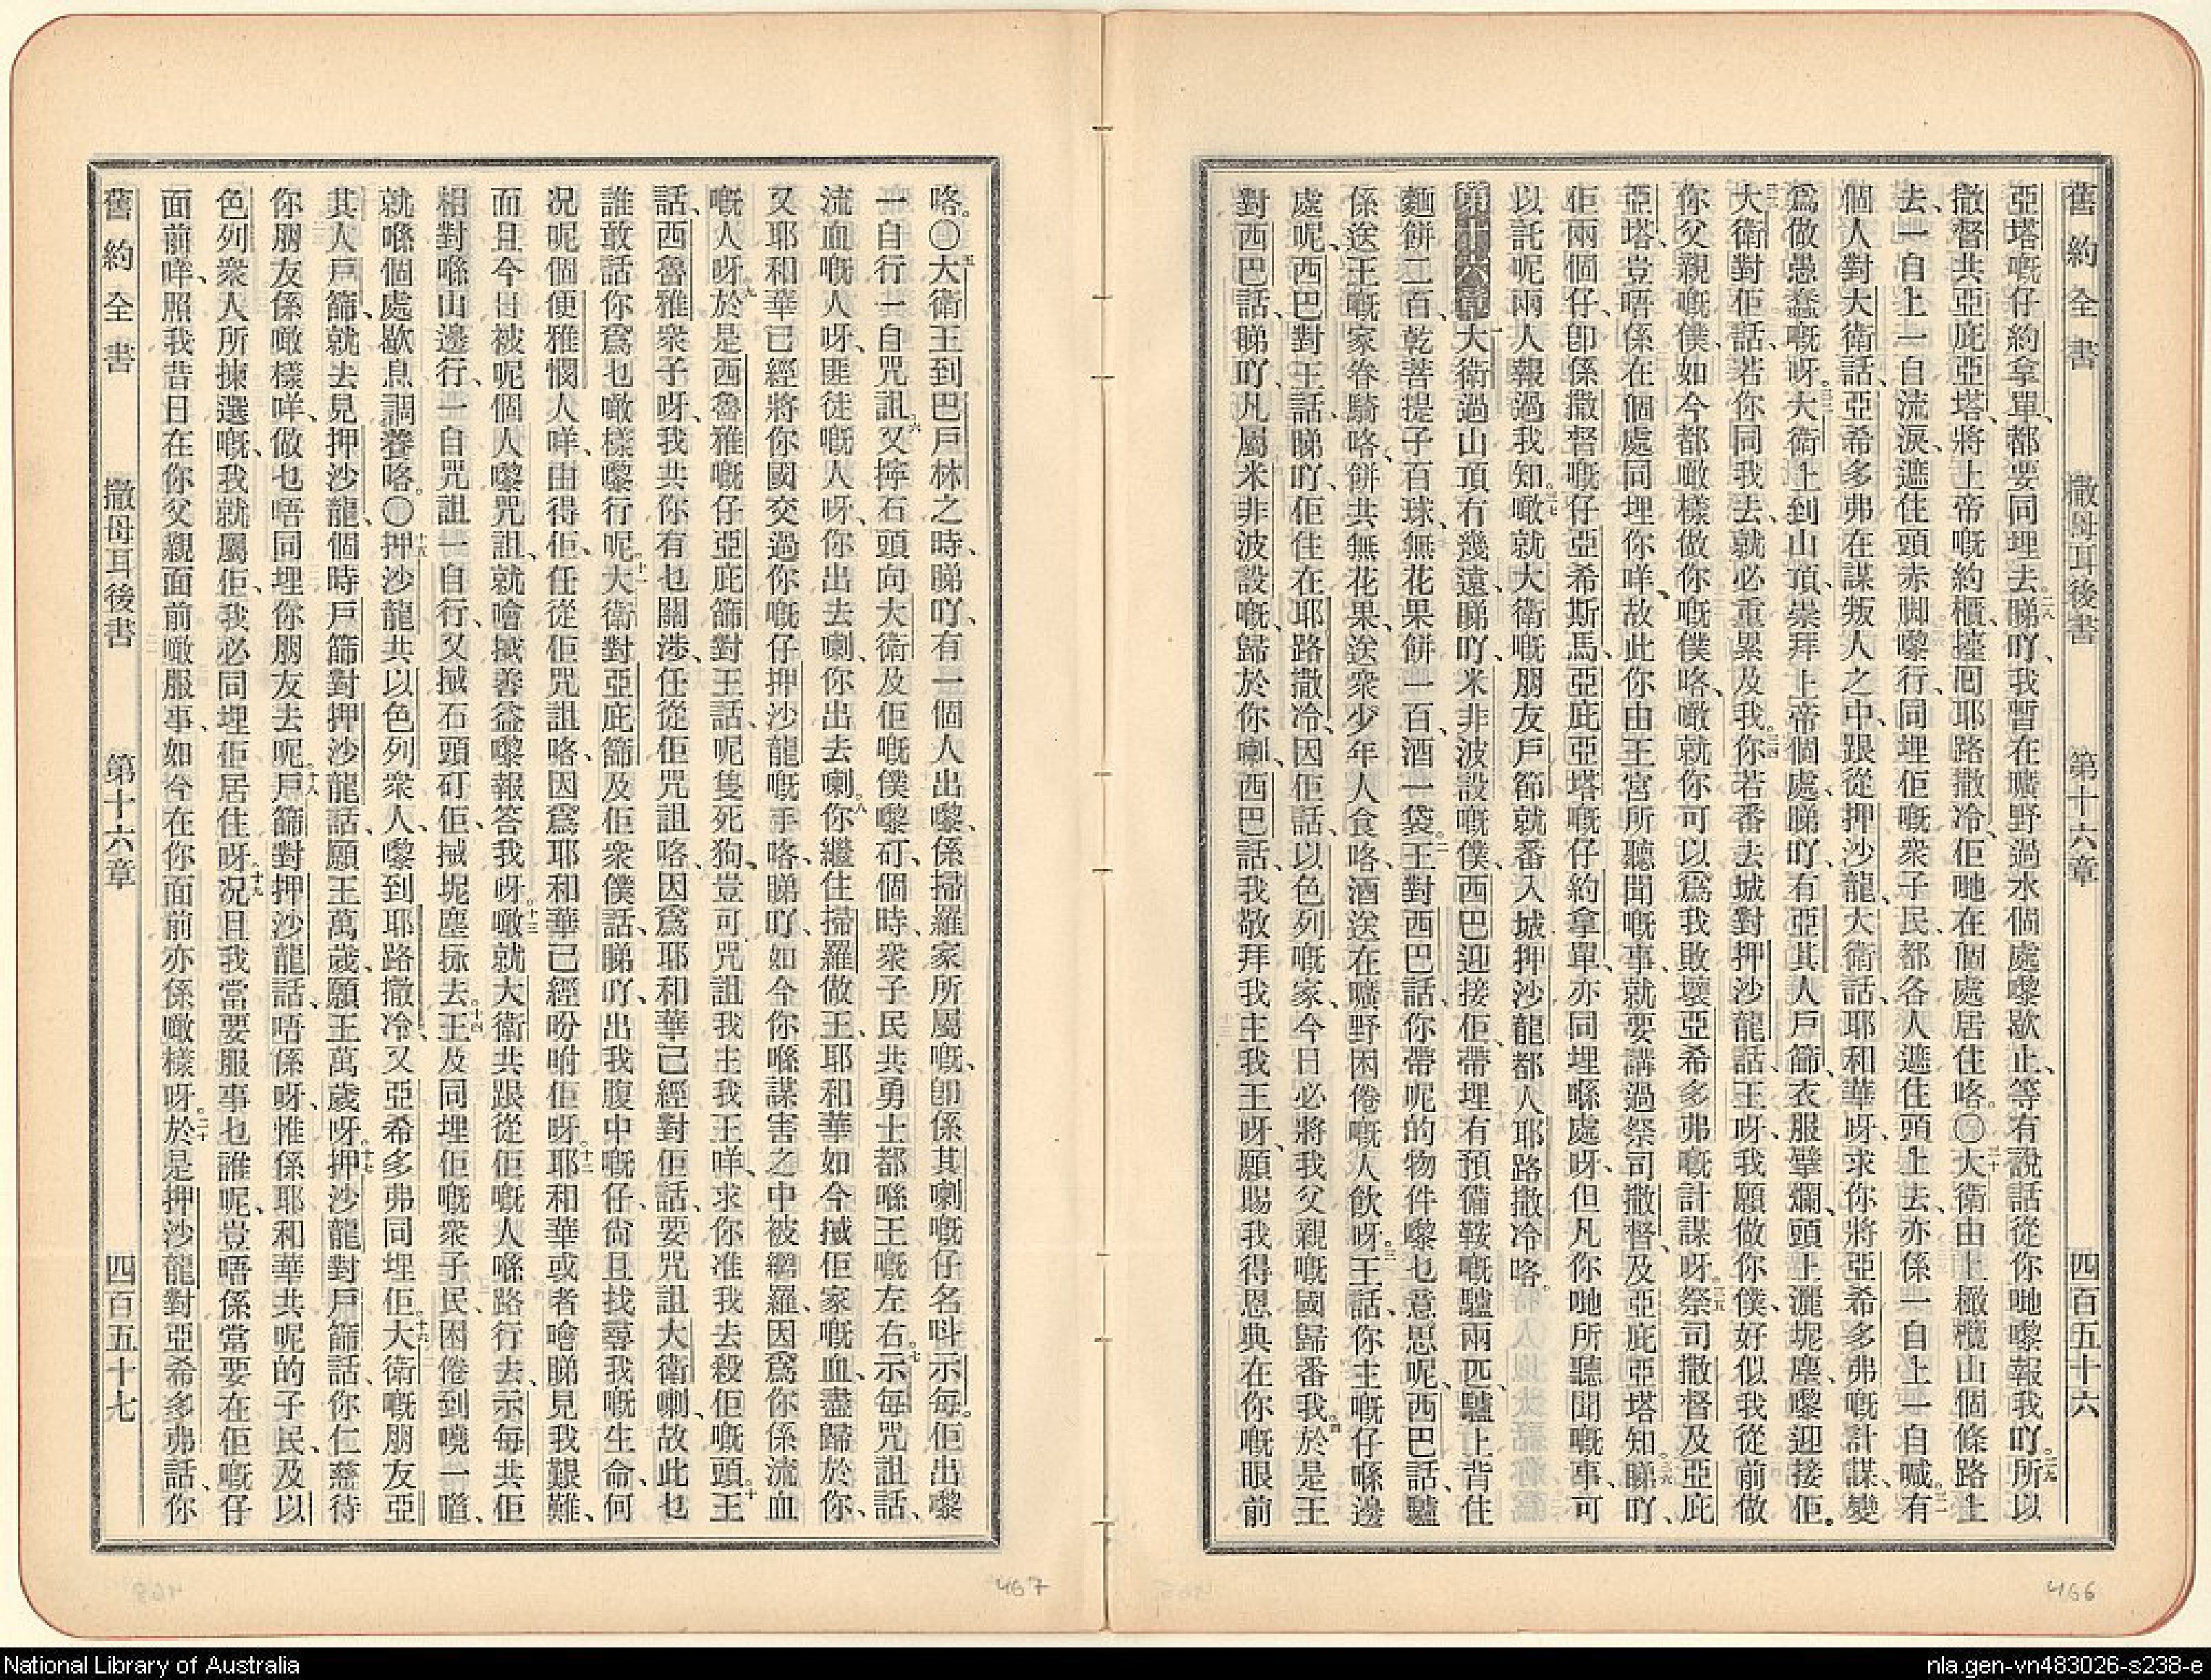 舊約全書 撒母耳後書 第十六章 四百五十六
亞塔嘅仔約拿單、都要同埋去。二八睇吖、我暫在曠野過水個處嚟歇止、等有說話從你哋嚟報我吖。二九所以
撒督共亞庇亞塔、將上帝嘅約櫃、擡囘耶路撒冷、佢哋在個處居住咯。〇三十大衛由上橄欖山個條路上
去、一自上一自流淚、遮住頭赤脚嚟行、同埋佢嘅衆子民、都各人遮住頭上去、亦係一自上一自喊。三一有
個人對大衛話、亞希多弗在謀叛人之中、跟從押沙龍、大衛話、耶和華呀、求你將亞希多弗嘅計謀、變
爲做愚蠢嘅呀。三二大衛上到山頂、崇拜上帝個處、睇吖、有亞其人戶篩、衣服擘爛、頭上灑坭塵、嚟迎接佢。
三三大衛對佢話、若你同我去、就必重累及我。三四你若番去城對押沙龍話、王呀、我願做你僕、好似我從前做
你父親嘅僕、如今都噉樣做你嘅僕咯、噉就你可以爲我敗壞亞希多弗嘅計謀呀。三五祭司撒督及亞庇
亞塔、豈唔係在個處同埋你咩、故此你由王宮所聽聞嘅事、就要講過祭司撒督、及亞庇亞塔知。三六睇吖、
佢兩個仔、卽係撒督嘅仔亞希斯馬、亞庇亞塔嘅仔約拿單、亦同埋喺處呀、但凡你哋所聽聞嘅事、可
以託呢兩人報過我知。三七噉就大衛嘅朋友戶篩就番入城、押沙龍都入耶路撒冷咯。
第十六章一大衛過山頂有幾遠、睇吖、米非波設嘅僕、西巴迎接佢、帶埋有預備鞍嘅驢兩匹、驢上背住
麵餅二百、乾菩提子百球、無花果餅一百、酒一袋。二王對西巴話、你帶呢的物件嚟乜意思呢、西巴話、驢
係送王嘅家眷騎咯、餅共無花果、送衆少年人食咯、酒送在曠野困倦嘅人飲呀。三王話、你主嘅仔喺邊
處呢、西巴對王話、睇吖、佢住在耶路撒冷、因佢話、以色列嘅家、今日必將我父親嘅國歸番我。四於是王
對西巴話、睇吖、凡屬米非波設嘅、歸於你喇、西巴話、我敬拜我主我王呀、願賜我得恩典在你嘅眼前
咯。〇五大衛王到巴戶林之時、睇吖、有一個人出嚟、係掃羅家所屬嘅、卽係其喇嘅仔名呌示每。佢出嚟
一自行一自咒詛。六又擰石頭向大衛及佢嘅僕嚟矴、個時衆子民共勇士都喺王嘅左右。七示每咒詛話、
流血嘅人呀、匪徒嘅人呀、你出去喇、你出去喇。八你繼住掃羅做王、耶和華如今搣佢家嘅血、盡歸於你、
又耶和華已經將你國交過你嘅仔押沙龍嘅手咯、睇吖、如今你喺謀害之中被網羅、因爲你係流血
嘅人呀。九於是西魯雅嘅仔亞庇篩對王話、呢隻死狗、豈可咒詛我主我王咩、求你准我去殺佢嘅頭。十王
話、西魯雅衆子呀、我共你有乜關涉、任從佢咒詛咯、因爲耶和華已經對佢話、要咒詛大衛喇、故此乜
誰敢話你爲乜噉樣嚟行呢。十一大衛對亞庇篩及佢衆僕話、睇吖、出我腹中嘅仔、尙且找尋我嘅生命、何
况呢個便雅憫人咩、由得佢、任從佢咒詛咯、因爲耶和華已經吩咐佢呀。十二耶和華或者噲睇見我艱難、
而且今日被呢個人嚟咒詛、就噲搣善益嚟報答我呀。十三噉就大衛共跟從佢嘅人喺路行去、示每共佢
相對喺山邊行、一自咒詛一自行、又搣石頭矴佢、搣坭塵捈去。十四王及同埋佢嘅衆子民、困倦到嘵一噵、
就喺個處歇息調養咯。〇十五押沙龍共以色列衆人、嚟到耶路撒冷、又亞希多弗同埋佢。十六大衛嘅朋友亞
其人戶篩、就去見押沙龍、個時戶篩對押沙龍話、願王萬歲、願王萬歲呀。十七押沙龍對戶篩話、你仁慈待
你朋友係噉樣咩、做乜唔同埋你朋友去呢。十八戶篩對押沙龍話、唔係呀、惟係耶和華共呢的子民、及以
色列衆人所揀選嘅、我就屬佢、我必同埋佢居住呀。十九况且我當要服事乜誰呢、豈唔係當要在佢嘅仔
面前咩、照我昔日在你父親面前噉服事、如今在你面前亦係噉樣呀。二十於是押沙龍對亞希多弗話、你
舊約全書 撒母耳後書 第十六章 四百五十七
466
467
National Library of Australia
nla.gen-vn483026-s238-e